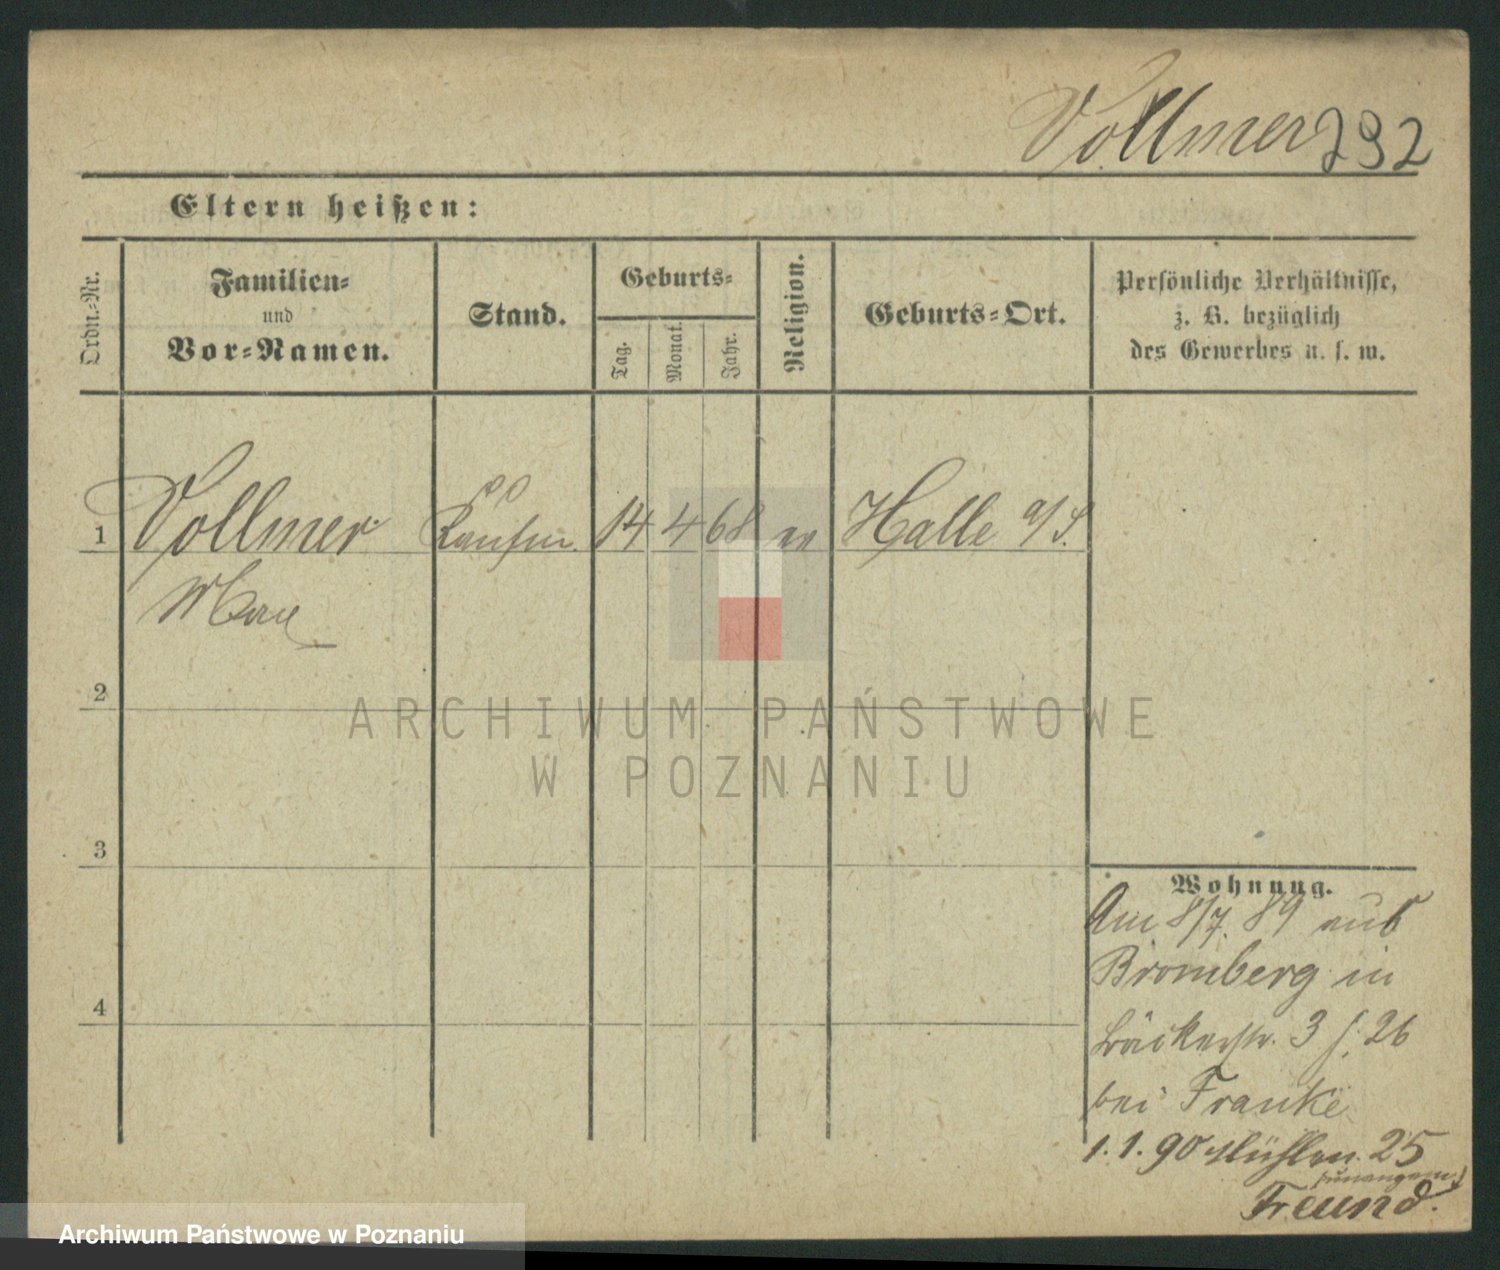 Vollmer 292
Eltern heißen:
Ordn.-Nr.
Familien-
und
Vor-Namen.
Stand.
Geburts-
Tag.
Monat.
Jahr.
Religion.
Geburts-Ort.
Persönliche Verhältnisse,
z. B. bezüglich
des Gewerbes u. s. w.
1 Vollmer Kaufm. 14 4 68 ev Halle a/S.
Max
2
3
4
ARCHIWUM PAŃSTWOWE
W POZNANIU
Wohnung.
Am 8/7. 89 aus
Bromberg in
Bäckerstr. 3 f. 26
bei Franke
1. 1. 90 Mühlen. 25
Freund.
Archiwum Państwowe w Poznaniu